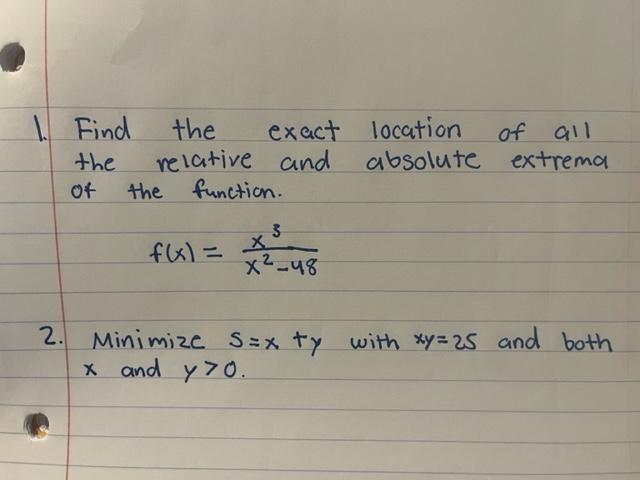 1. Find the exact location of all
the relative and absolute extrema
of the function.
f(x) = x³/(x²-48)
2. Minimize S=x+y with xy=25 and both
x and y>0.